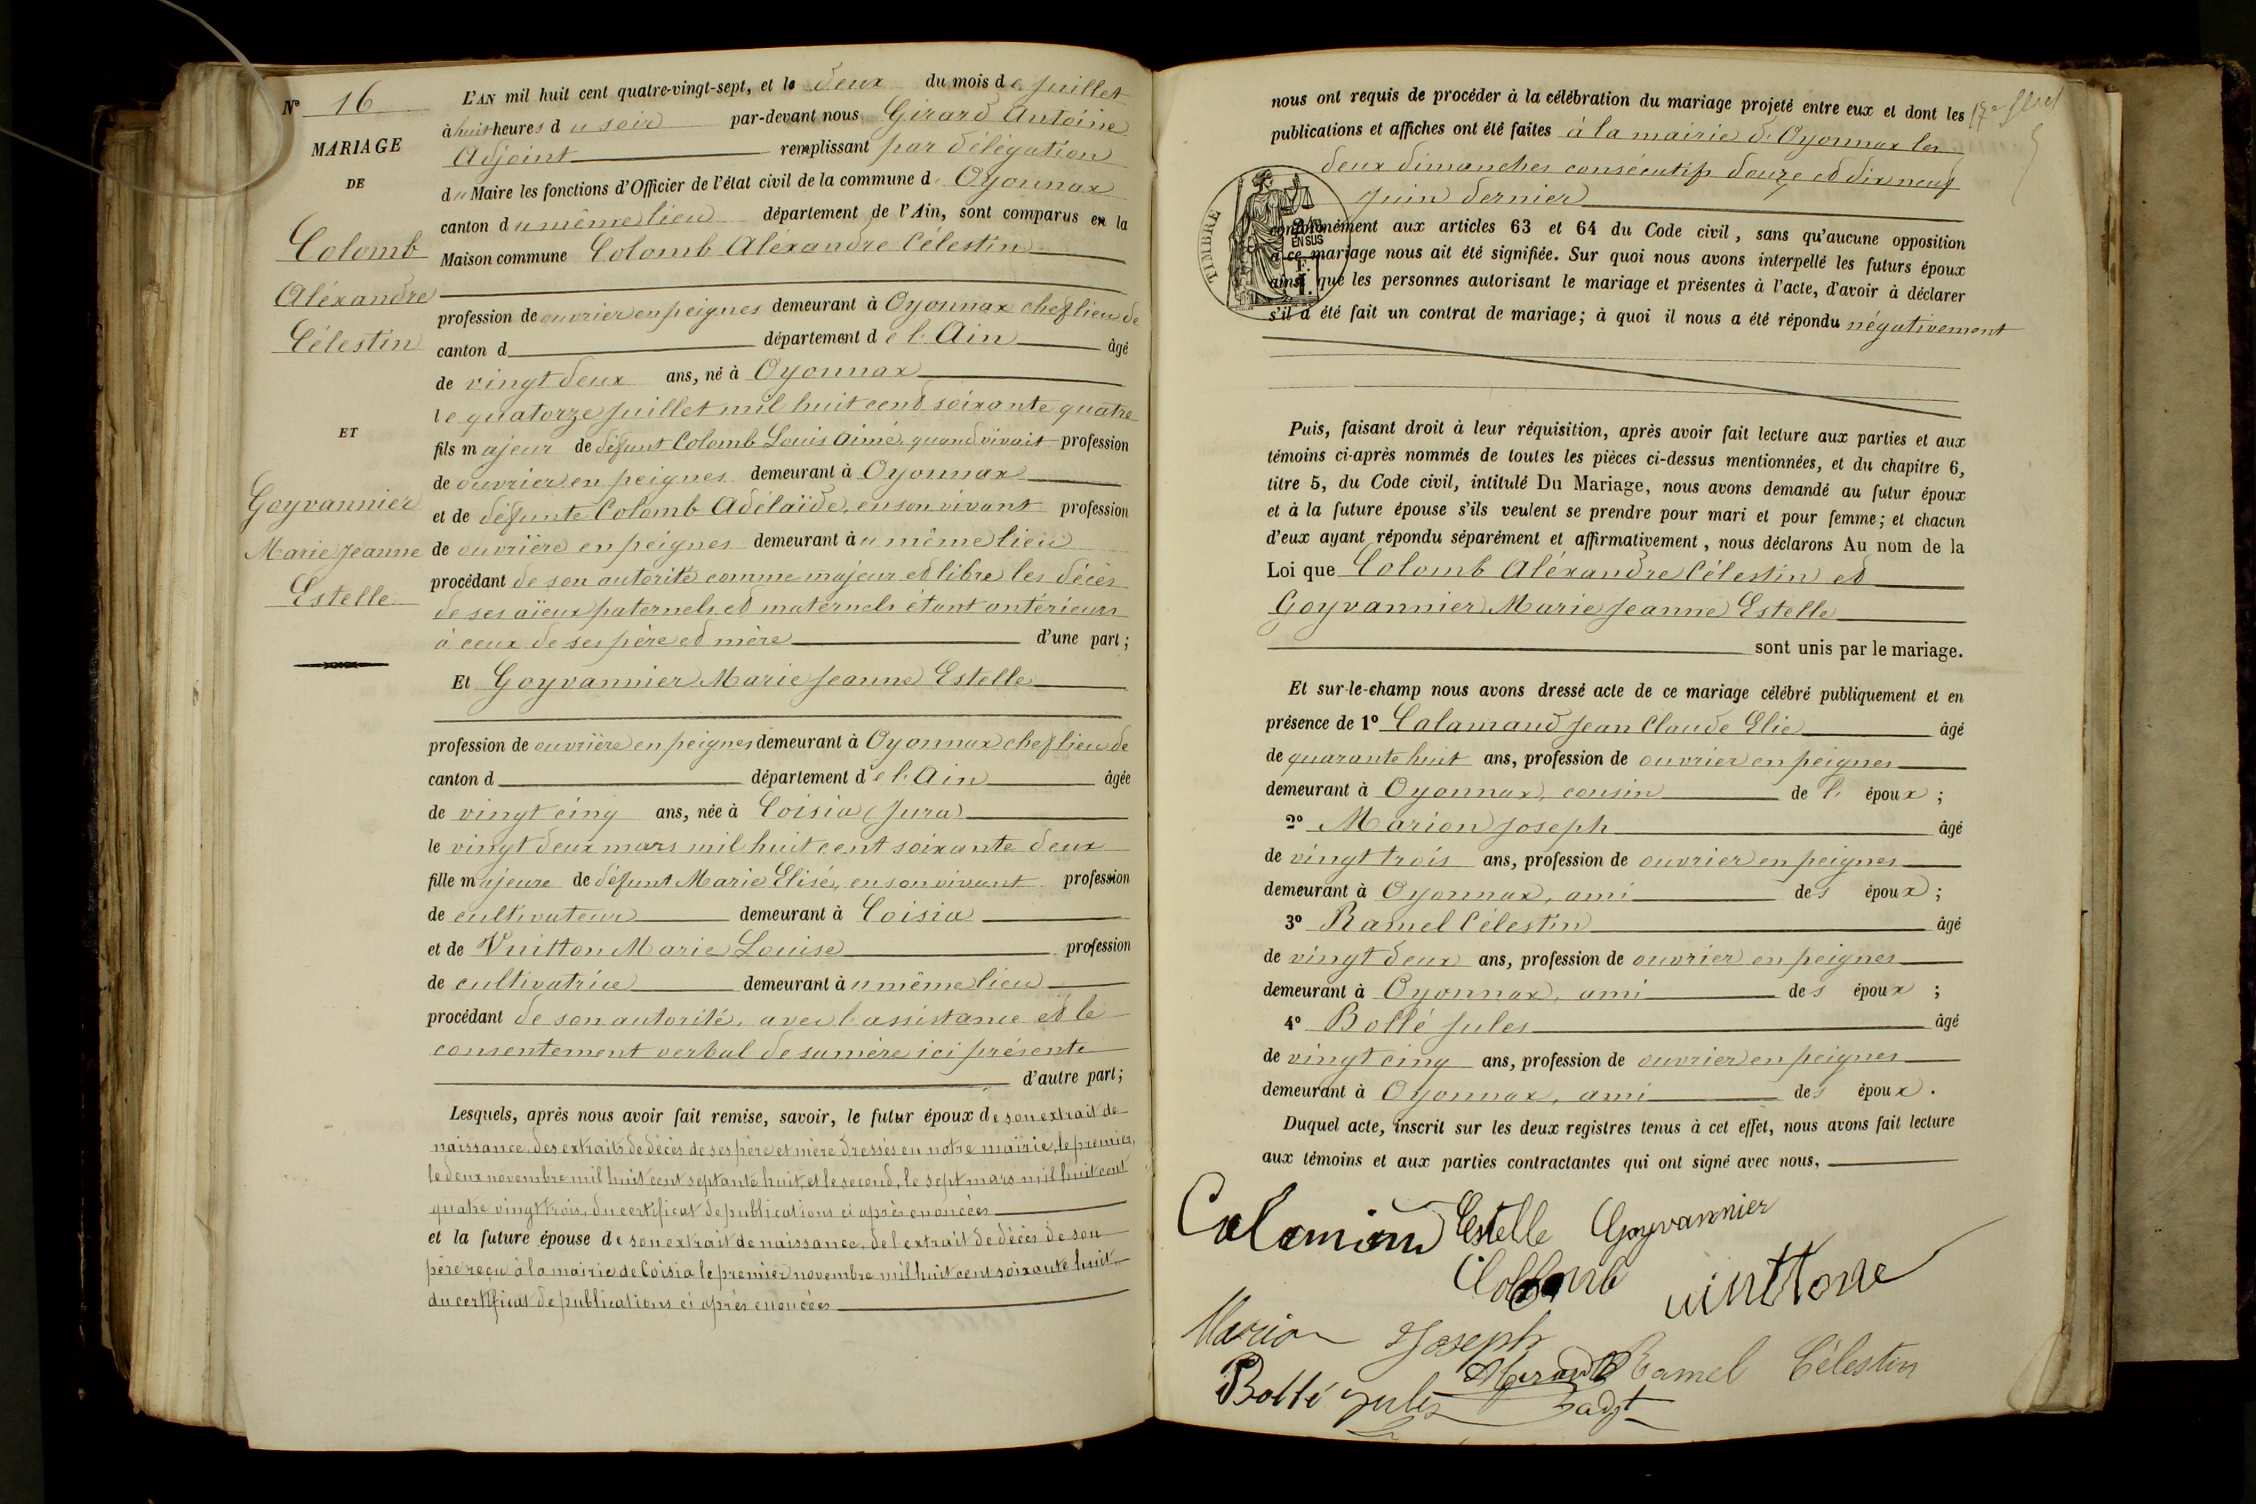 N° 16
MARIAGE
DE
Colomb
Aléxandre
Célestin
ET
Goyvannier
Marie Jeanne
Estelle
L'AN mil huit cent quatre-vingt-sept, et le deux du mois de juillet
à huit heures du soir par-devant nous Girard Antoine
Adjoint remplissant par délégation
du Maire les fonctions d'Officier de l'état civil de la commune d'Oyonnax
canton du même lieu département de l'Ain, sont comparus en la
Maison commune Colomb Aléxandre Célestin
profession de ouvrier en peignes demeurant à Oyonnax chef lieu de
canton d département de l'Ain âgé
de vingt deux ans, né à Oyonnax
le quatorze juillet mil huit cent soixante quatre
fils majeur de défunt Colomb Louis Aimé, quand vivait profession
de ouvrier en peignes demeurant à Oyonnax
et de défunte Colomb Adélaïde, en son vivant profession
de ouvrière en peignes demeurant au même lieu
procédant de son autorité comme majeur et libre les décès
de ses aïeux paternels et maternels étant antérieurs
à ceux de ses père et mère d'une part;
Et Goyvannier Marie Jeanne Estelle
profession de ouvrière en peignes demeurant à Oyonnax chef lieu de
canton d département de l'Ain âgée
de vingt cinq ans, née à Coisia (Jura)
le vingt deux mars mil huit cent soixante deux
fille majeure de défunt Marie Elisé, en son vivant profession
de cultivateur demeurant à Coisia
et de Vuitton Marie Louise profession
de cultivatrice demeurant au même lieu
procédant de son autorité, avec l'assistance et le
consentement verbal de sa mère ici présente
d'autre part;
Lesquels, après nous avoir fait remise, savoir, le futur époux de son extrait de
naissance, des extraits de décès de ses père et mère dressés en notre mairie, le premier,
le deux novembre mil huit cent septante huit, et le second, le sept mars mil huit cent
quatre vingt trois, du certificat de publications ci après énoncées
et la future épouse de son extrait de naissance, de l'extrait de décès de son
père reçu à la mairie de Coisia le premier novembre mil huit cent soixante huit
du certificat de publications ci après énoncées
nous ont requis de procéder à la célébration du mariage projeté entre eux et dont les
publications et affiches ont été faites à la mairie d'Oyonnax les
deux dimanches consécutifs douze et dix neuf
juin dernier
TIMBRE
2/10
EN SUS
conformément aux articles 63 et 64 du Code civil, sans qu'aucune opposition
à ce mariage nous ait été signifiée. Sur quoi nous avons interpellé les futurs époux
ainsi que les personnes autorisant le mariage et présentes à l'acte, d'avoir à déclarer
s'il a été fait un contrat de mariage; à quoi il nous a été répondu négativement
Puis, faisant droit à leur réquisition, après avoir fait lecture aux parties et aux
témoins ci-après nommés de toutes les pièces ci-dessus mentionnées, et du chapitre 6,
titre 5, du Code civil, intitulé Du Mariage, nous avons demandé au futur époux
et à la future épouse s'ils veulent se prendre pour mari et pour femme; et chacun
d'eux ayant répondu séparément et affirmativement, nous déclarons Au nom de la
Loi que Colomb Aléxandre Célestin et
Goyvannier Marie Jeanne Estelle
sont unis par le mariage.
Et sur-le-champ nous avons dressé acte de ce mariage célébré publiquement et en
présence de 1° Calamand Jean Claude Elie âgé
de quarante huit ans, profession de ouvrier en peignes
demeurant à Oyonnax, cousin de l'époux;
2° Marion Joseph âgé
de vingt trois ans, profession de ouvrier en peignes
demeurant à Oyonnax, ami des époux;
3° Ramel Célestin âgé
de vingt deux ans, profession de ouvrier en peignes
demeurant à Oyonnax, ami des époux;
4° Bollé Jules âgé
de vingt cinq ans, profession de ouvrier en peignes
demeurant à Oyonnax, ami des époux.
Duquel acte, inscrit sur les deux registres tenus à cet effet, nous avons fait lecture
aux témoins et aux parties contractantes qui ont signé avec nous,
Estelle Goyvannier
Marion Joseph
Ramel Célestin
Bollé Jules
adjt